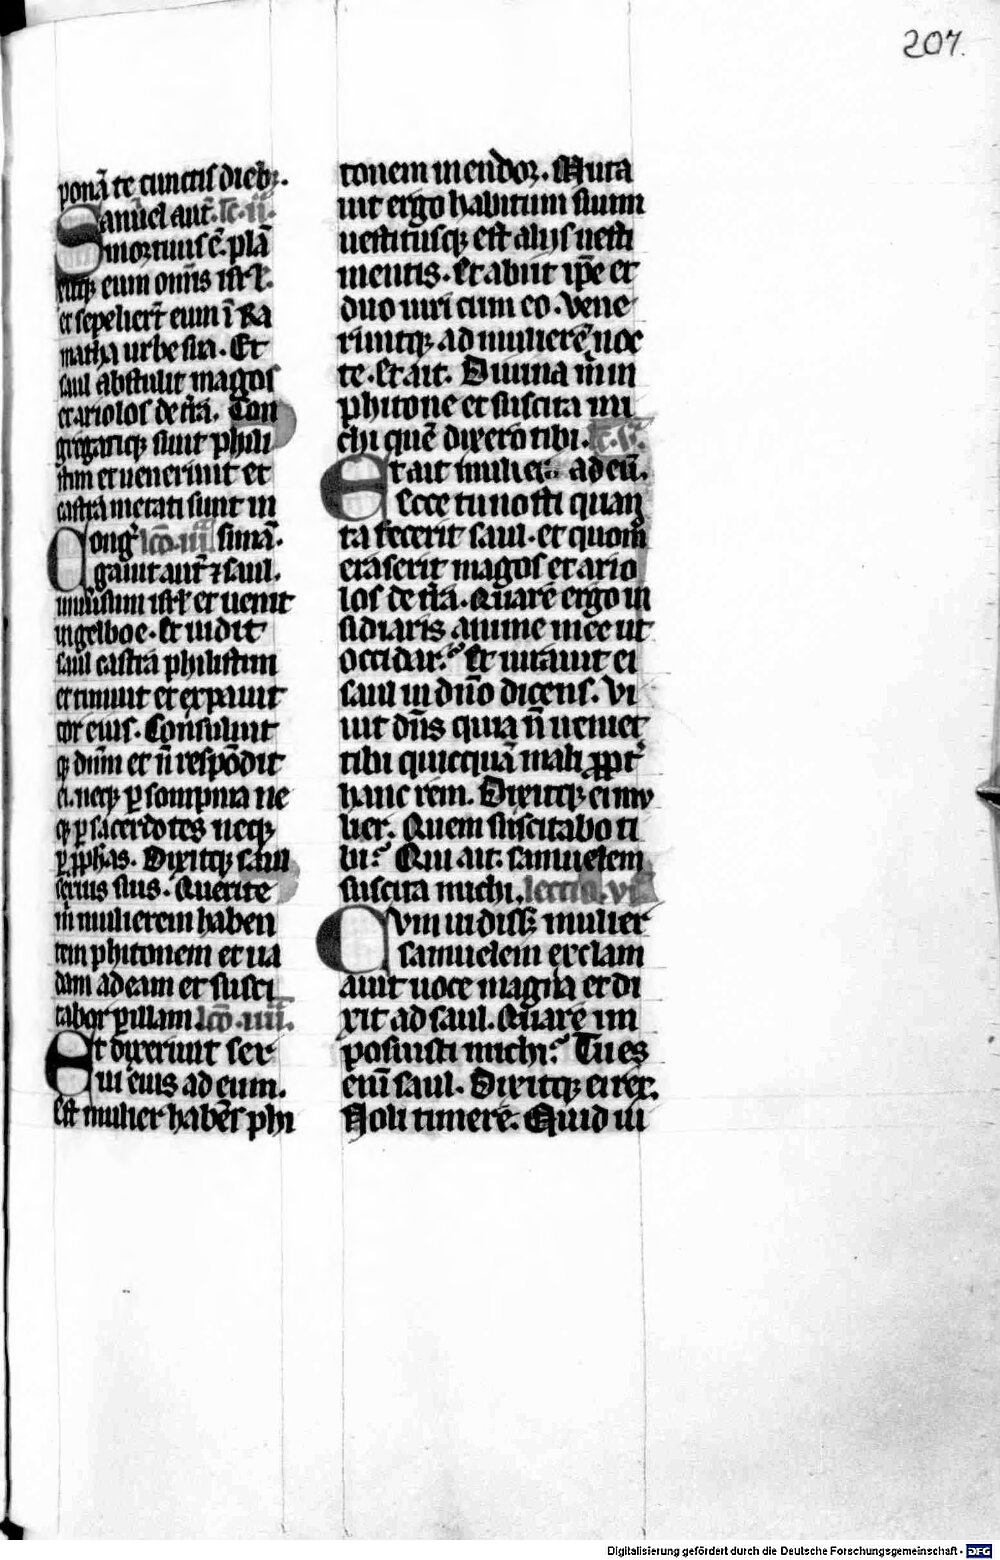 207.
ponā te cunctis diebꝫ.
Samuel aut̄. lc̄. ii.
mortuus ē. plā
xitqꝫ eum om̄is isrl̄.
et sepeliert̄ eum ī Ra
matha urbe sua. Et
saul abstulit magos
et ariolos de t̄ra. Con
gregatiqꝫ sunt phili
stim et uenerunt et
castra metati sunt in
Congͥ lcō. iii sunā.
gauit aut̄ ⁊ saul.
uniūsum isrl̄ et uenit
in gelboe. Et uidit
saul castra philistim
et timuit et expauit
cor eius. Consuluit
qꝫ dn̄m et n̄ respōdit
ei. neqꝫ ꝑ sompnia ne
qꝫ ꝑ sacerdotes neqꝫ
ꝑ ꝓph̄as. Dixitqꝫ saul
seruis suis. Querite
m̄ mulierem haben
tem phitonem et ua
dam ad eam et susci
tabor ꝑ illam lcō. iiii.
Et dixerunt ser
ui eius ad eum.
Est mulier habēs phi
tonem in endoꝝ. Muta
uit ergo habitum suum
uestitusqꝫ est alijs uesti
mentis. Et abiit ip̄e et
duo uiri cum eo. Vene
runtqꝫ ad mulierē noc
te. Et ait. Diuina m̄ in
phitone et suscita mi
chi quē dixero tibi. lc̄. v.
Et ait mulier ad eū.
Ecce tu nosti quan
ta fecerit saul. et quom̄
eraserit magos et ario
los de t̄ra. Quare ergo in
sidiaris anime mee ut
occidar? Et iurauit ei
saul in dn̄o dicens. Vi
uit dn̄s quia n̄ ueniet
tibi quicquā mali ꝓpt̄
hanc rem. Dixitqꝫ ei mu
lier. Quem suscitabo ti
bi? Qui ait. samuelem
suscita michi. lectio. vi
Cvm uidiss; mulier
samuelem exclam
auit uoce magna et di
xit ad saul. Quare im
posuisti michi? Tu es
enī saul. Dixitqꝫ ei rex.
Noli timere. Quid ui
Digitalisierung gefördert durch die Deutsche Forschungsgemeinschaft - DFG